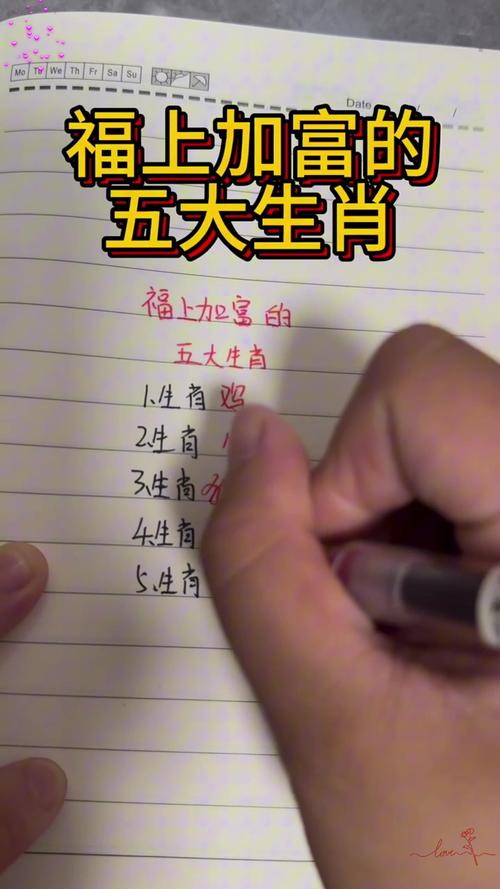 Mo Tu We Th Fr Sa Su
Date / /
福上加富的
五大生肖
福上加富的
五大生肖
1.生肖鸡
2.生肖
3.生肖
4.生肖
5.生肖
love